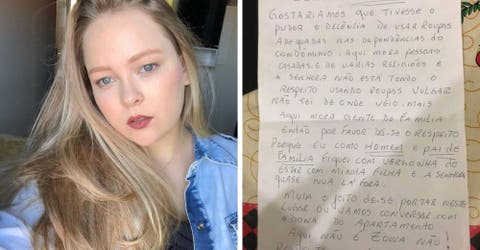 GOSTARIAMOS QUE TIVESSE O
PUDOR E DECÊNCIA DE USAR ROUPAS
ADEQUADAS NAS DEPENDÊNCIAS DO
CONDOMINIO. AQUI MORA PESSOAS
CASADAS E DE VARIAS RELIGIÕES E
A SENHORA NÃO ESTÁ TENDO O
RESPEITO USANDO ROUPAS VULGAR
NÃO SEI DE ONDE VEIO, MAIS
AQUI MORA GENTE DE FAMILIA
ENTÃO POR FAVOR DÊ-SE O RESPEITO
PORQUE EU COMO HOMEM E PAI DE
FAMÍLIA FIQUEI COM VERGONHA DE
ESTAR COM MINHA FILHA E A SENHORA
QUASE NUA LÁ FORA.
MUDA O JEITO DE SE PORTAR NESTE
LUGAR OU VAMOS CONVERSAR COM
A DONA DO APARTAMENTO
AQUI NÃO É ZONA NÃO!